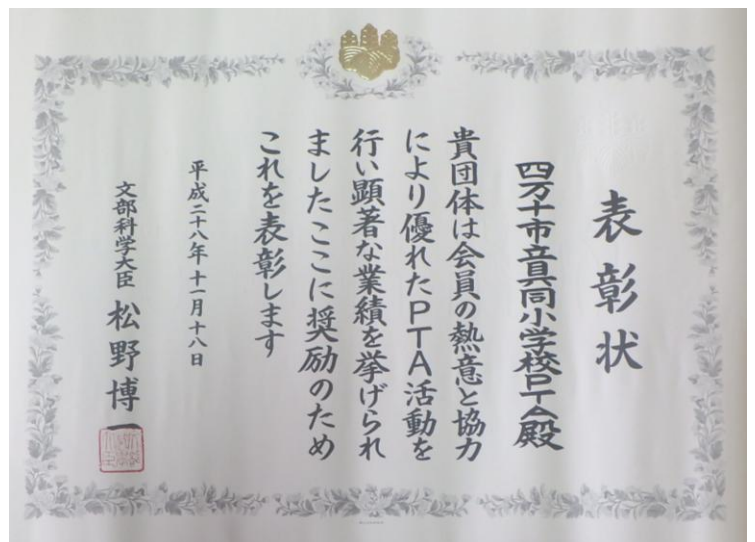 表彰状
四万十市立具同小学校PTA殿
貴団体は会員の熱意と協力
により優れたPTA活動を
行い顕著な業績を挙げられ
ましたここに奨励のため
これを表彰します
平成二十八年十一月十八日
文部科学大臣 松野博一